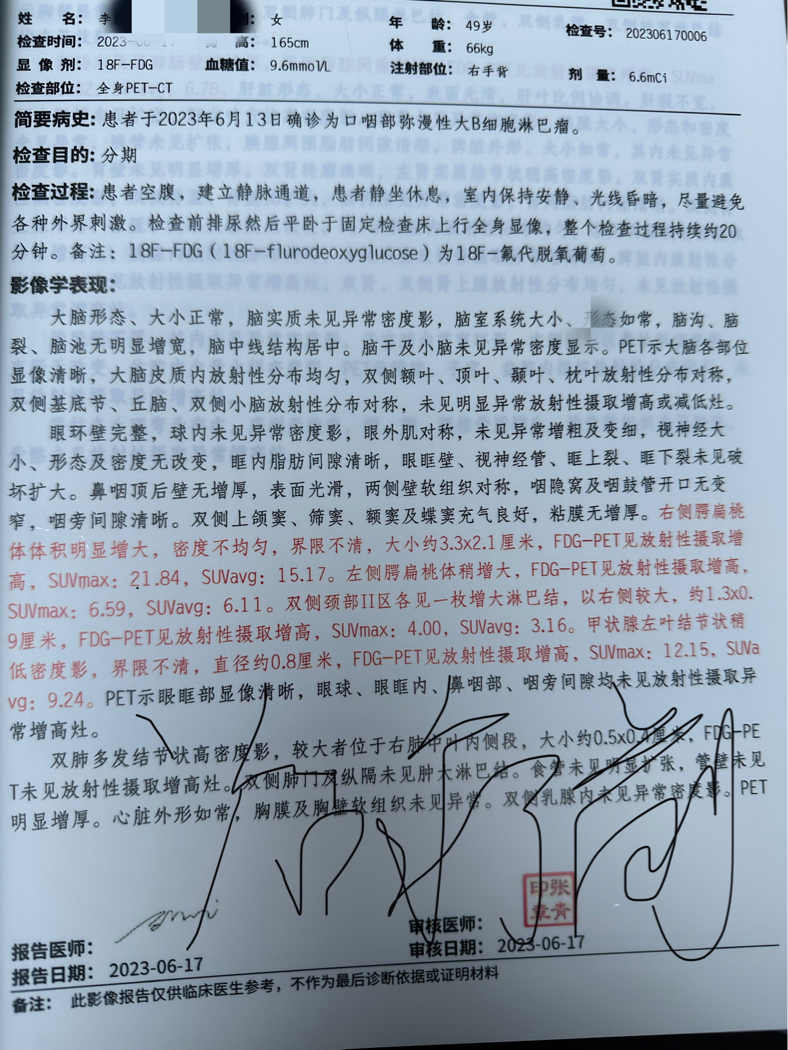 姓 名：李 别：女 年 龄：49岁 检查号：202306170006
检查时间：2023-06-17 身 高：165cm 体 重：66kg
显 像 剂：18F-FDG 血糖值：9.6mmol/L 注射部位：右手背 剂 量：6.6mCi
检查部位：全身PET-CT
简要病史：患者于2023年6月13日确诊为口咽部弥漫性大B细胞淋巴瘤。
检查目的：分期
检查过程：患者空腹，建立静脉通道，患者静坐休息，室内保持安静、光线昏暗，尽量避免
各种外界刺激。检查前排尿然后平卧于固定检查床上行全身显像，整个检查过程持续约20
分钟。备注：18F-FDG（18F-flurodeoxyglucose）为18F-氟代脱氧葡萄。
影像学表现：
大脑形态、大小正常，脑实质未见异常密度影，脑室系统大小、形态如常，脑沟、脑
裂、脑池无明显增宽，脑中线结构居中。脑干及小脑未见异常密度显示。PET示大脑各部位
显像清晰，大脑皮质内放射性分布均匀，双侧额叶、顶叶、颞叶、枕叶放射性分布对称，
双侧基底节、丘脑、双侧小脑放射性分布对称，未见明显异常放射性摄取增高或减低灶。
眼环壁完整，球内未见异常密度影，眼外肌对称，未见异常增粗及变细，视神经大
小、形态及密度无改变，眶内脂肪间隙清晰，眼眶壁、视神经管、眶上裂、眶下裂未见破
坏扩大。鼻咽顶后壁无增厚，表面光滑，两侧壁软组织对称，咽隐窝及咽鼓管开口无变
窄，咽旁间隙清晰。双侧上颌窦、筛窦、额窦及蝶窦充气良好，粘膜无增厚。右侧腭扁桃
体体积明显增大，密度不均匀，界限不清，大小约3.3x2.1厘米，FDG-PET见放射性摄取增
高，SUVmax：21.84，SUVavg：15.17。左侧腭扁桃体稍增大，FDG-PET见放射性摄取增高，
SUVmax：6.59，SUVavg：6.11。双侧颈部II区各见一枚增大淋巴结，以右侧较大，约1.3x0.
9厘米，FDG-PET见放射性摄取增高，SUVmax：4.00，SUVavg：3.16。甲状腺左叶结节状稍
低密度影，界限不清，直径约0.8厘米，FDG-PET见放射性摄取增高，SUVmax：12.15，SUVa
vg：9.24。PET示眼眶部显像清晰，眼球、眼眶内、鼻咽部、咽旁间隙均未见放射性摄取异
常增高灶。
双肺多发结节状高密度影，较大者位于右肺中叶内侧段，大小约0.5x0.4厘米，FDG-PE
T未见放射性摄取增高灶。双侧肺门及纵隔未见肿大淋巴结。食管未见明显扩张，管壁未见
明显增厚。心脏外形如常，胸膜及胸壁软组织未见异常。双侧乳腺内未见异常密度影。PET
报告医师： 审核医师： 印张
章青
报告日期：2023-06-17 审核日期：2023-06-17
备注： 此影像报告仅供临床医生参考，不作为最后诊断依据或证明材料